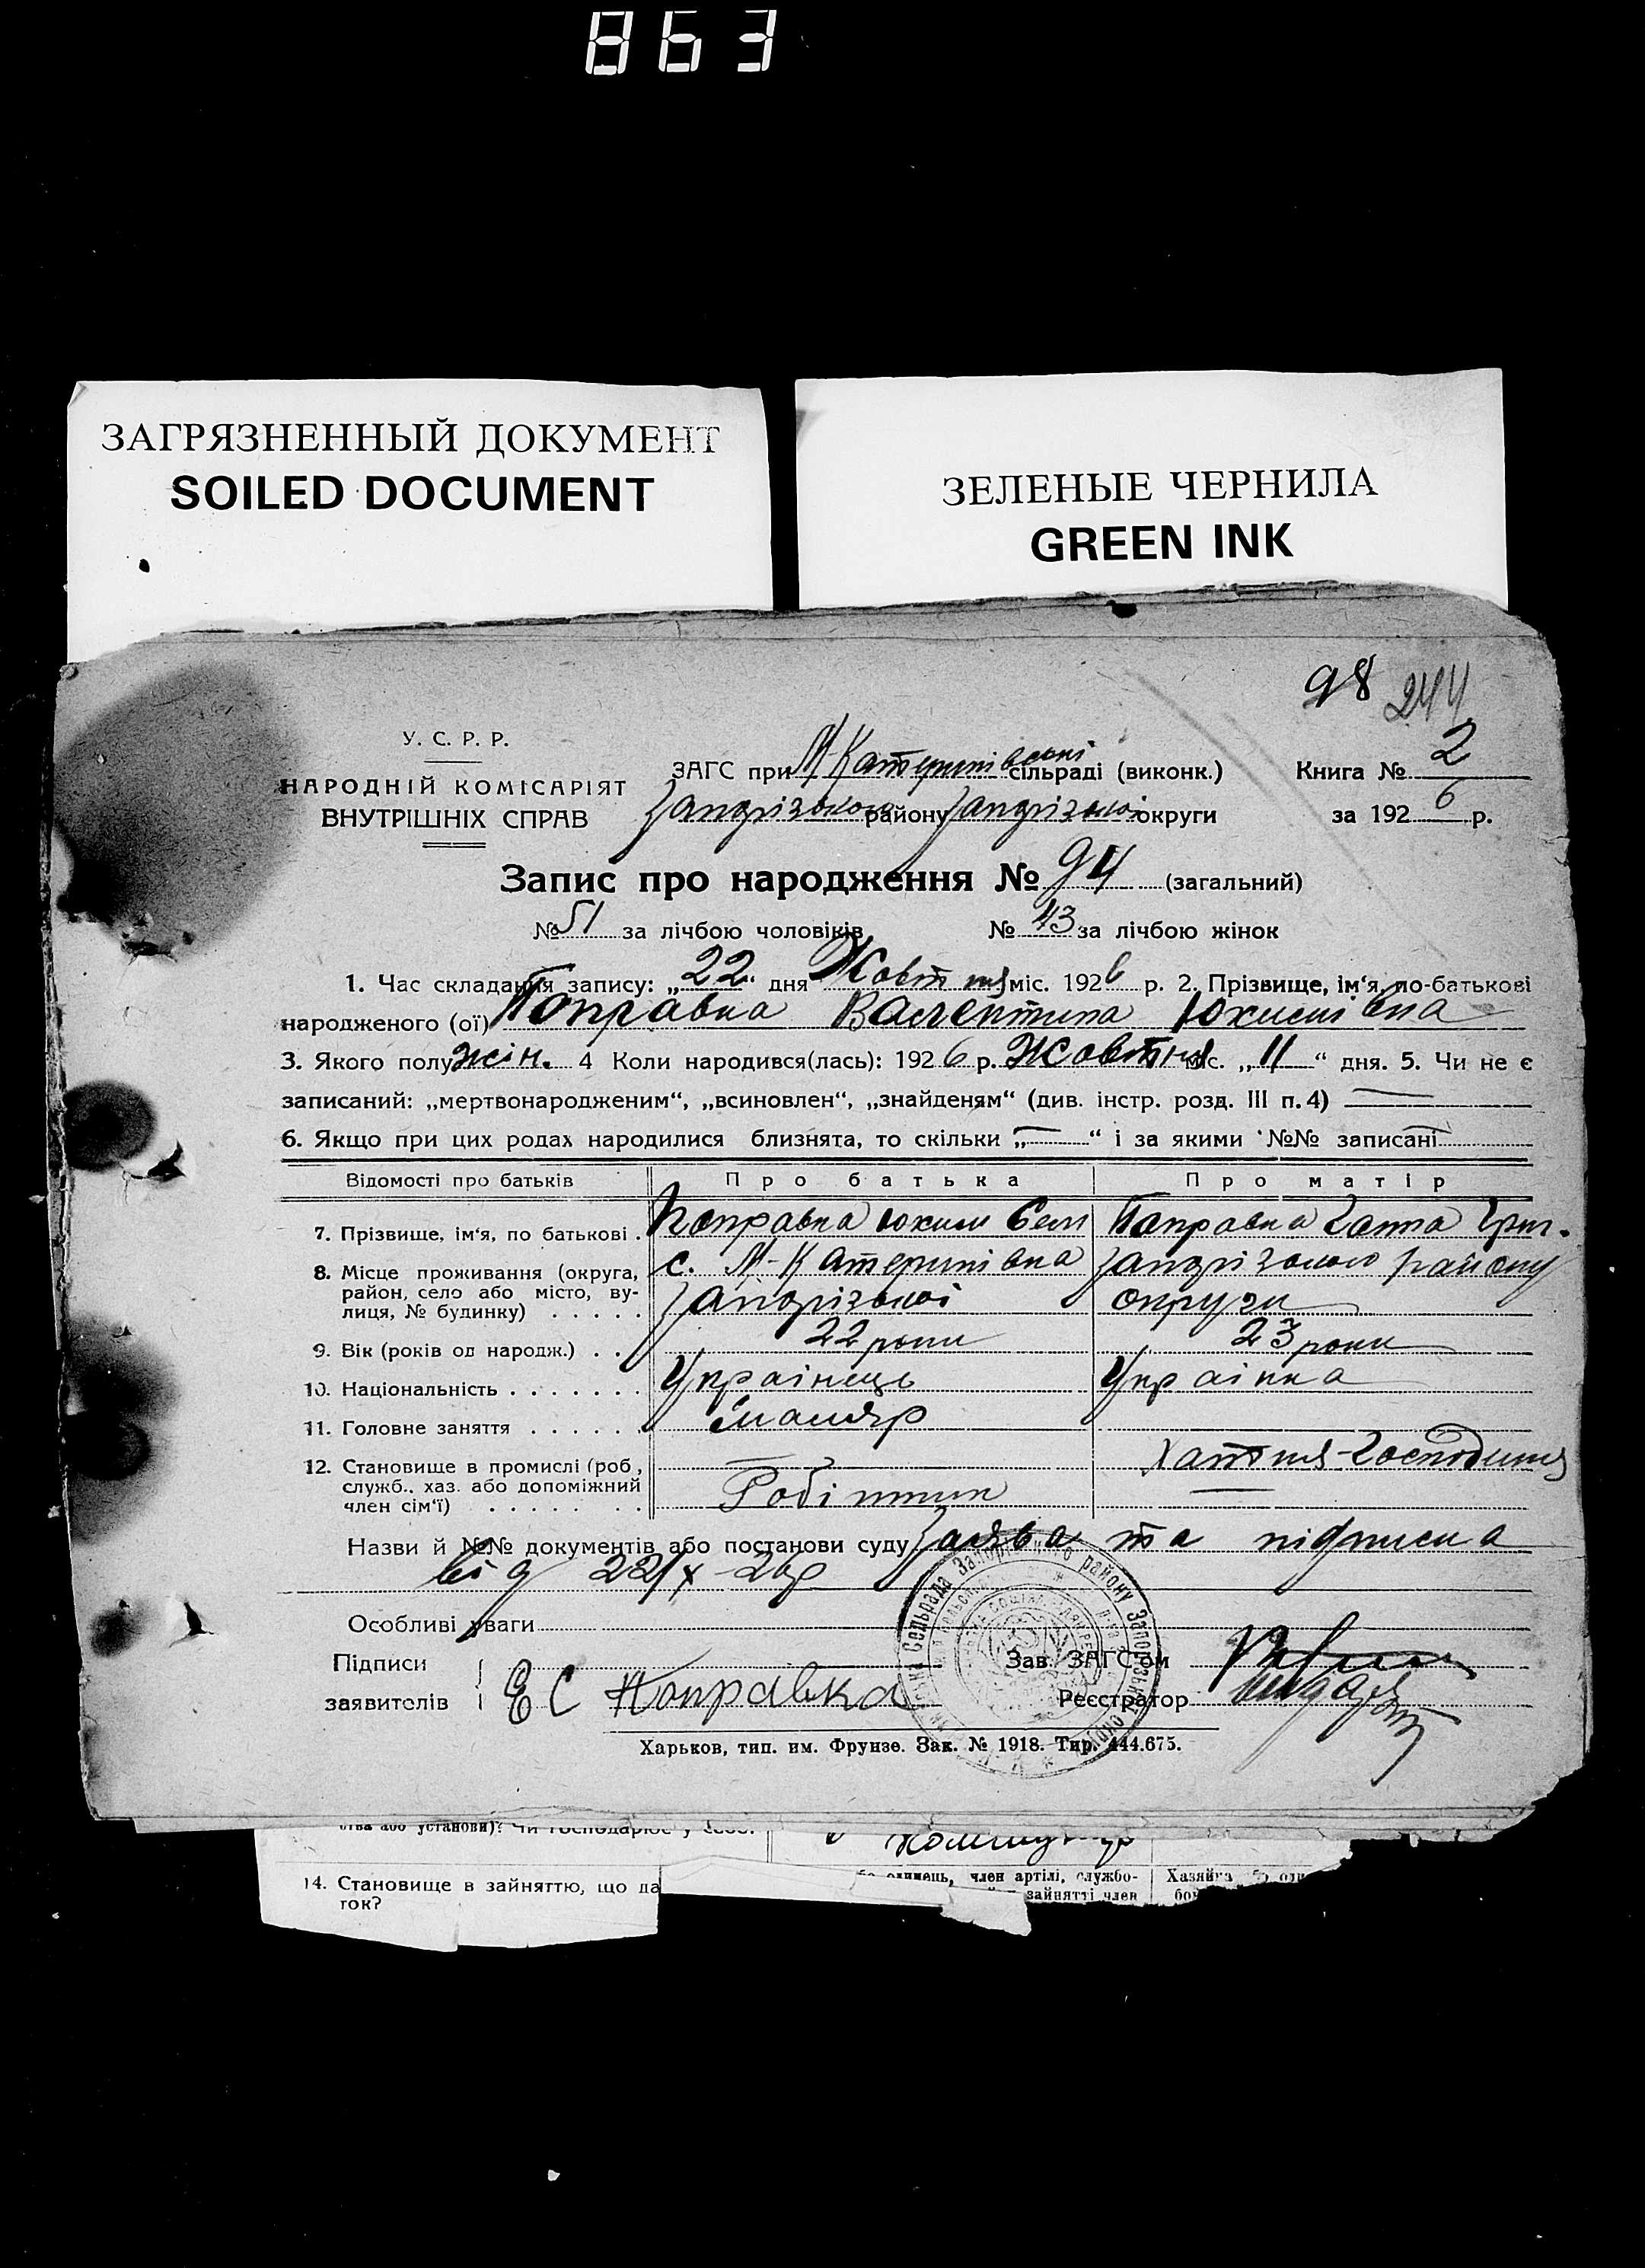 863
ЗАГРЯЗНЕННЫЙ ДОКУМЕНТ
SOILED DOCUMENT
ЗЕЛЕНЫЕ ЧЕРНИЛА
GREEN INK
98 244
У. С. Р. Р.
НАРОДНІЙ КОМІСАРІЯТ
ВНУТРІШНІХ СПРАВ
ЗАГС при М-Катеринівські сільраді (виконк.) Книга № 2
Запорізького району Запорізької округи за 1926 р.
Запис про народження № 94 (загальний)
№ 51 за лічбою чоловіків № 43 за лічбою жінок
1. Час складання запису: „22“ дня Жовтня міс. 1926 р. 2. Прізвище, ім'я, по-батькові
народженого (ої) Поправка Валентина Юхимівна
3. Якого полу жін. 4 Коли народився(лась): 1926 р. Жовтня міс. „11“ дня. 5. Чи не є
записаний: „мертвонародженим“, „всиновлен“, „знайденям“ (див. інстр. розд. III п. 4) —
6. Якщо при цих родах народилися близнята, то скільки „—“ і за якими №№ записані —
Відомості про батьків Про батька Про матір
7. Прізвище, ім'я, по батькові . Поправка Юхим Сем Поправка Ганна Григ.
8. Місце проживання (округа, район, село або місто, вулиця, № будинку) . . . . . с. М-Катеринівка Запорізького району
Запорізької округи
9. Вік (років од народж.) . . . 22 роки 23 роки
10. Національність . . . . . . . Українець Українка
11. Головне заняття . . . . . . Маляр
12. Становище в промислі (роб., служб., хаз. або допоміжний член сім'ї) . . . . . . . — Робітник Хатня-Господиня —
Назви й №№ документів або постанови суду Заява та підписка
від 22/X-26р
Особливі уваги
Підписи
заявителів Е С Поправка
Зав. ЗАГС'ом
Реєстратор
Харьков, тип. им. Фрунзе. Зак. № 1918. Тир. 444.675.
14. Становище в зайняттю, що да
ток?
член артілі, службо-
зайнятті член
Хазяйка